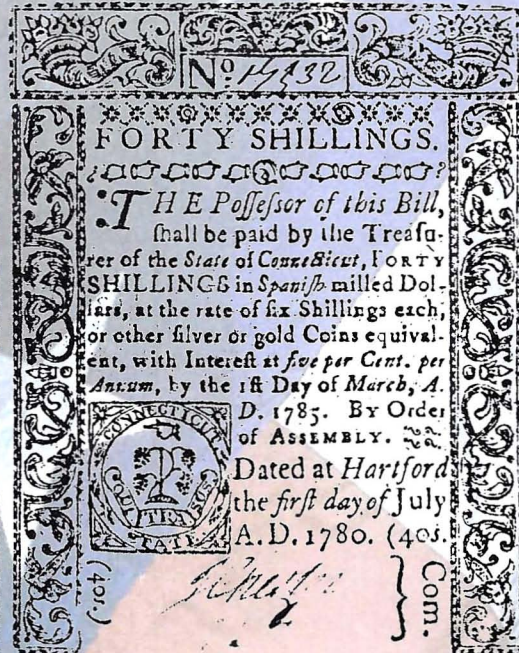 No
FORTY SHILLINGS.
THE Poſſeſſor of this Bill,
ſhall be paid by the Treaſu-
rer of the State of Connecticut, FORTY
SHILLINGS in Spaniſh milled Dol-
lars, at the rate of ſix Shillings each,
or other ſilver or gold Coins equival-
ent, with Intereſt at five per Cent. per
Annum, by the 1ſt Day of March, A.
D. 1785. By Order
of ASSEMBLY.
Dated at Hartford
the firſt day of July
A.D. 1780. (40s.
CONNECTICUT
(40s.)
Com.